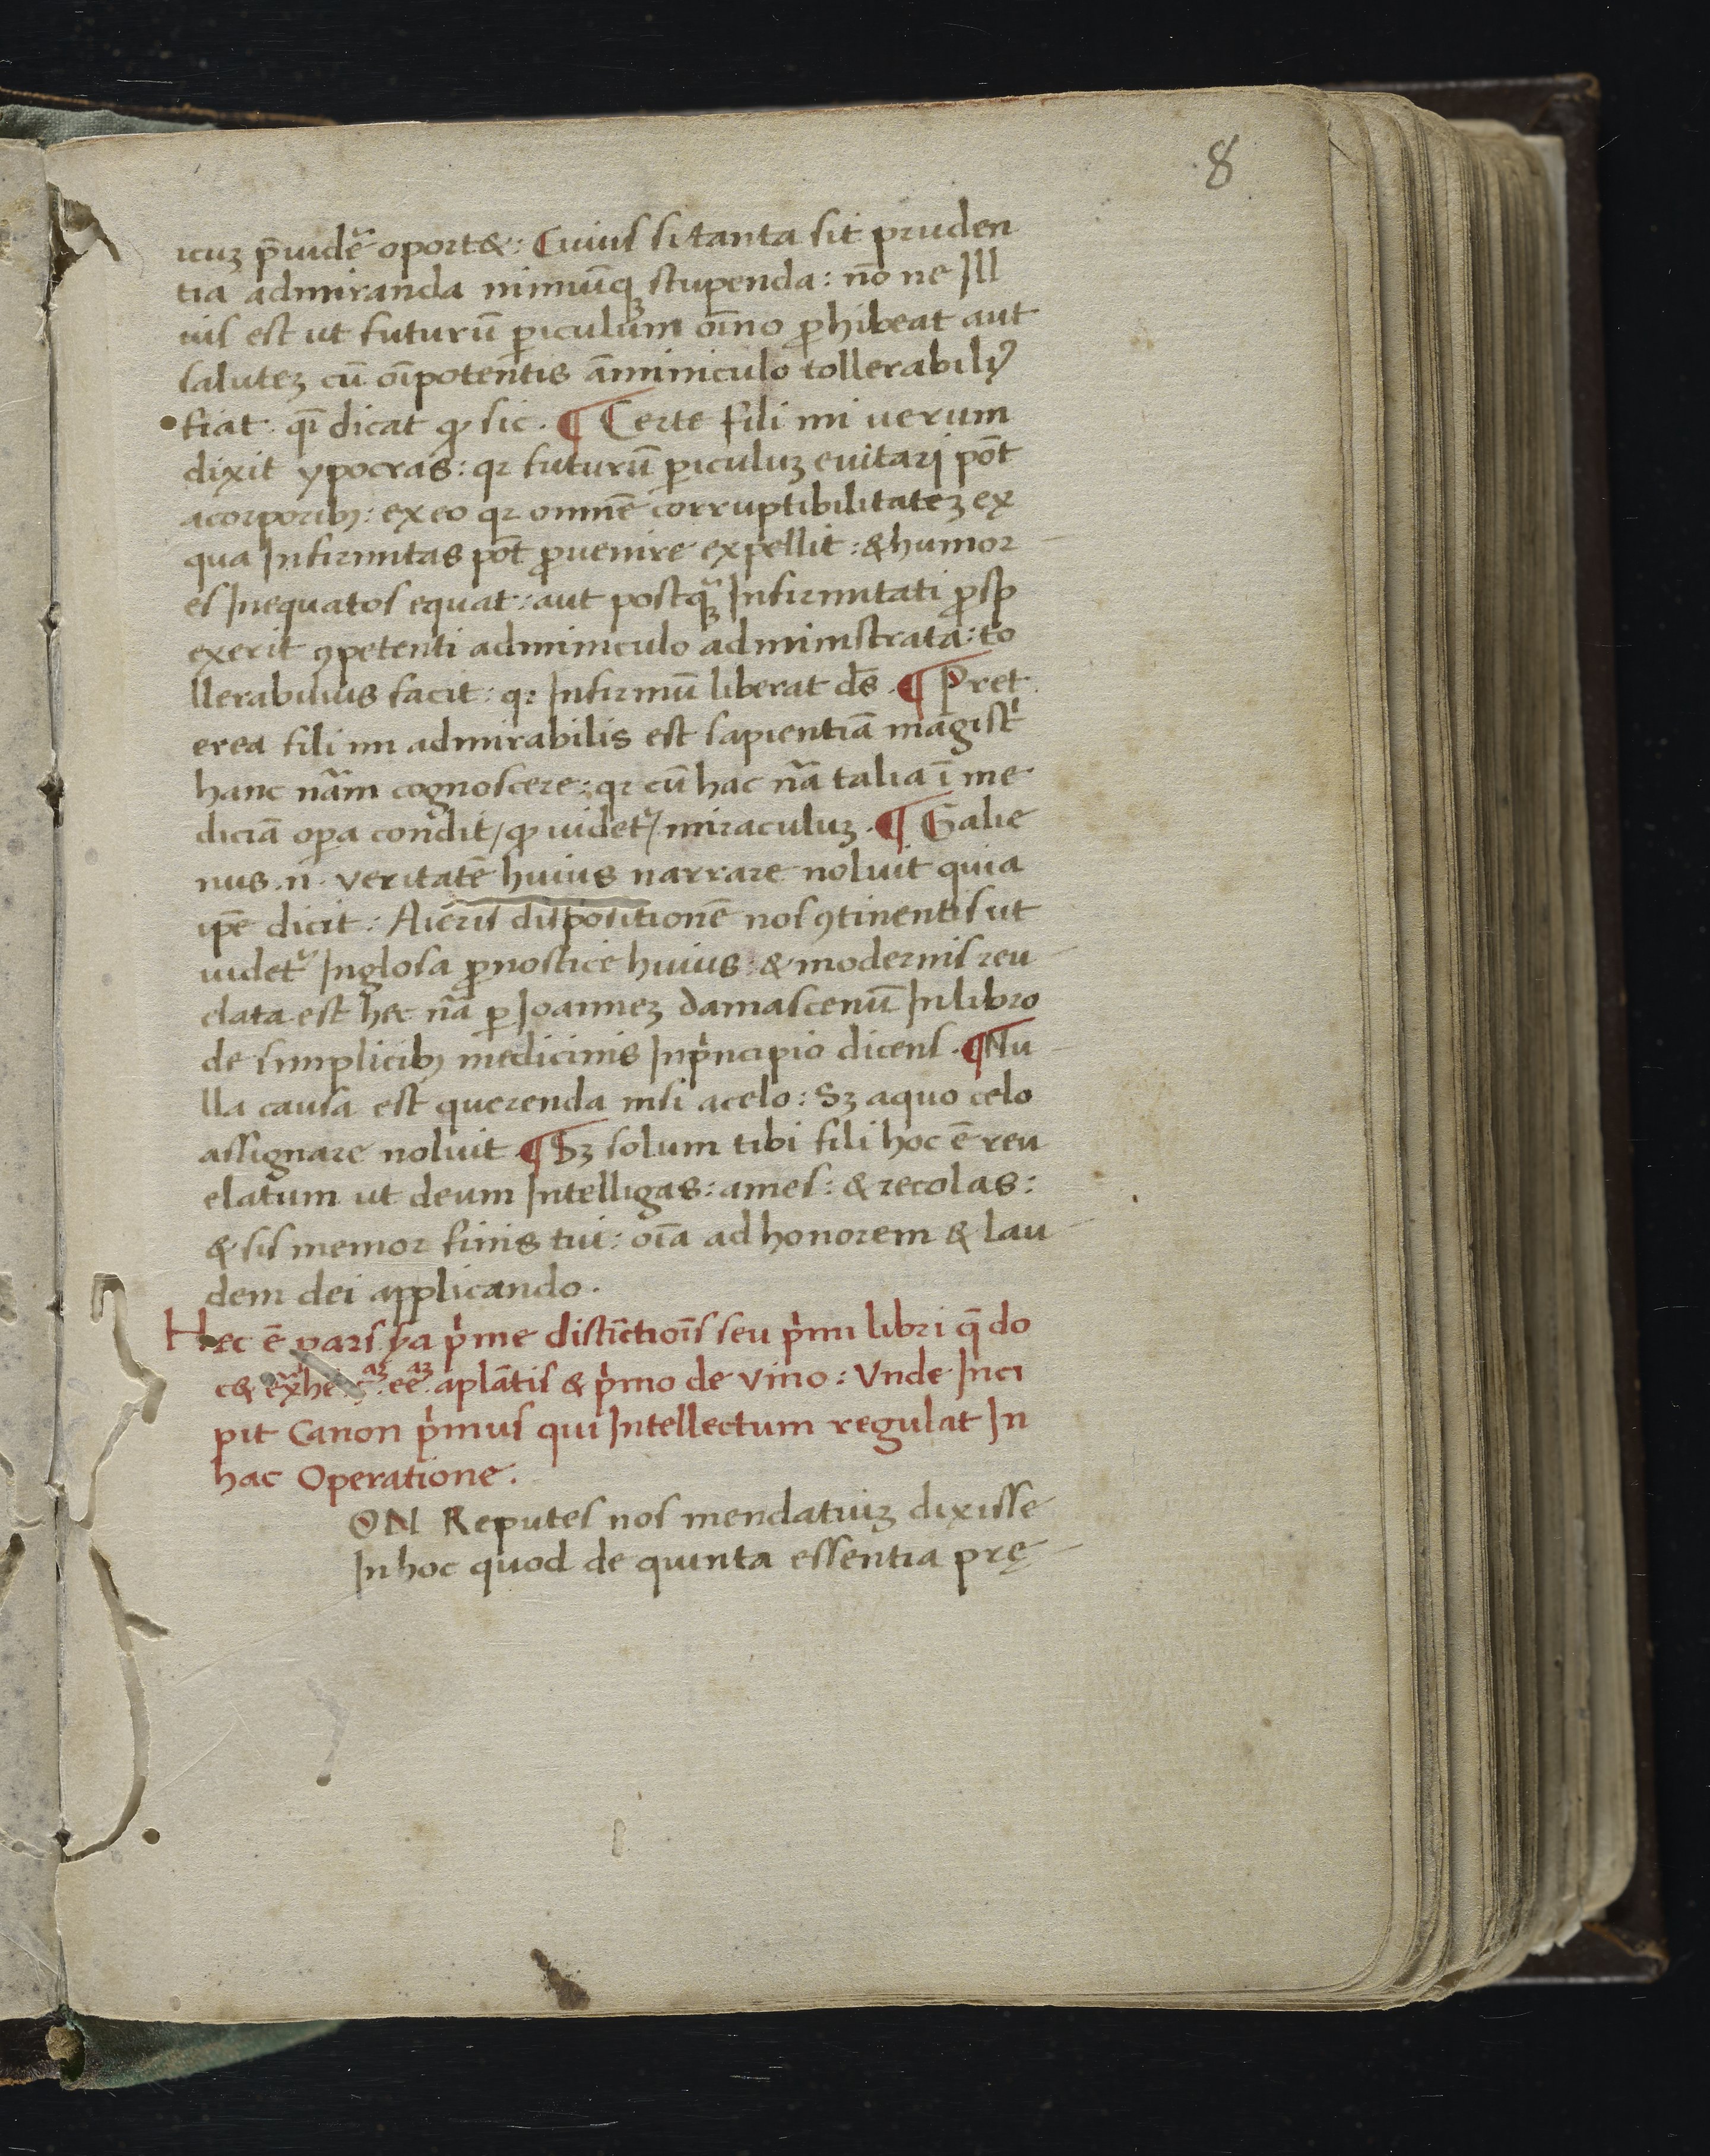 8
icuꝫ p̄uidẽ oport&: Cuius si tanta sit pruden
tia admiranda nimiūqꝫ stupenda: nō ne Ill
ius est ut futurū ꝑiculum oīno ꝓhibeat aut
saluteꝫ cū oīpotentis āminiculo tollerabiliꝰ
fiat. qī dicat ꝙ sic. ¶ Certe fili mi verum
dixit ypocras: qꝛ futurū ꝑiculuꝫ euitari pōt
acorporibꝫ: exeo qꝛ omnē corruptibilitateꝫ ex
qua Infirmitas pōt ꝓuenire expellit: & humor
es Inequatos equat: aut postqꝫ Infirmitati ꝓsp
exerit ꝯpetenti adminiculo administrata: to
llerabilius facit: qꝛ Infirmū liberat dēs. ¶ Pret
erea fili mi admirabilis est sapientiā magist
hanc nām cognoscere: qꝛ cū hac nā talia ī me
diciā oꝑa condit / ꝙ uidet᷑ / miraculuꝫ. ¶ Galie
nus .n. veritatē huius narrare noluit quia
ipē dicit: Aieris dispositionē nos ꝯtinentis ut
uidet᷑ Inglosa ꝓnostice huius: & modernis reu
elata est hec nā ꝑ Joanneꝫ damascenū Inlibro
de simplicibꝫ medicinis Inpͥncipio dicens. ¶ Nu
lla causa est querenda nisi acelo: Sꝫ aquo celo
assignare noluit ¶ Sꝫ solum tibi fili hoc ē reu
elatum ut deum Intelligas: ames: & recolas:
& sis memor finis tui: oīa ad honorem & lau
dem dei applicando.
Hec ē pars ẏa pͥme distīctiōis seu pͥmi libri q̄ do
c& aplātis & pͥmo de vino: Vnde Inci
pit Canon pͥmus qui Intellectum regulat In
hac Operatione.
ON Reputes nos mendatiuꝫ dixisse
In hoc quod de quinta essentia prę